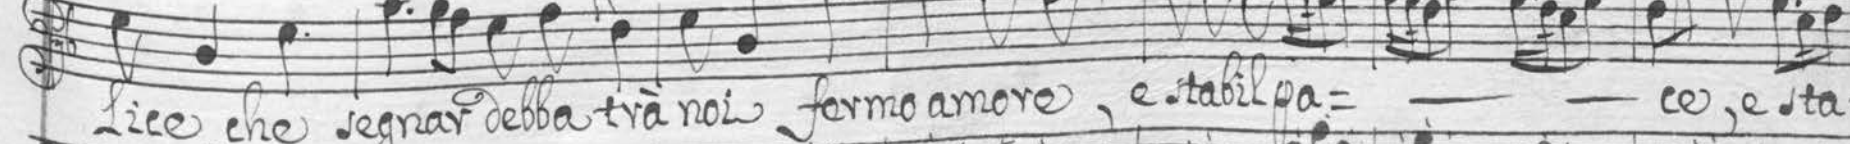 lice che segnar debba trà noi fermo amore, e stabil pa= — — ce, e sta